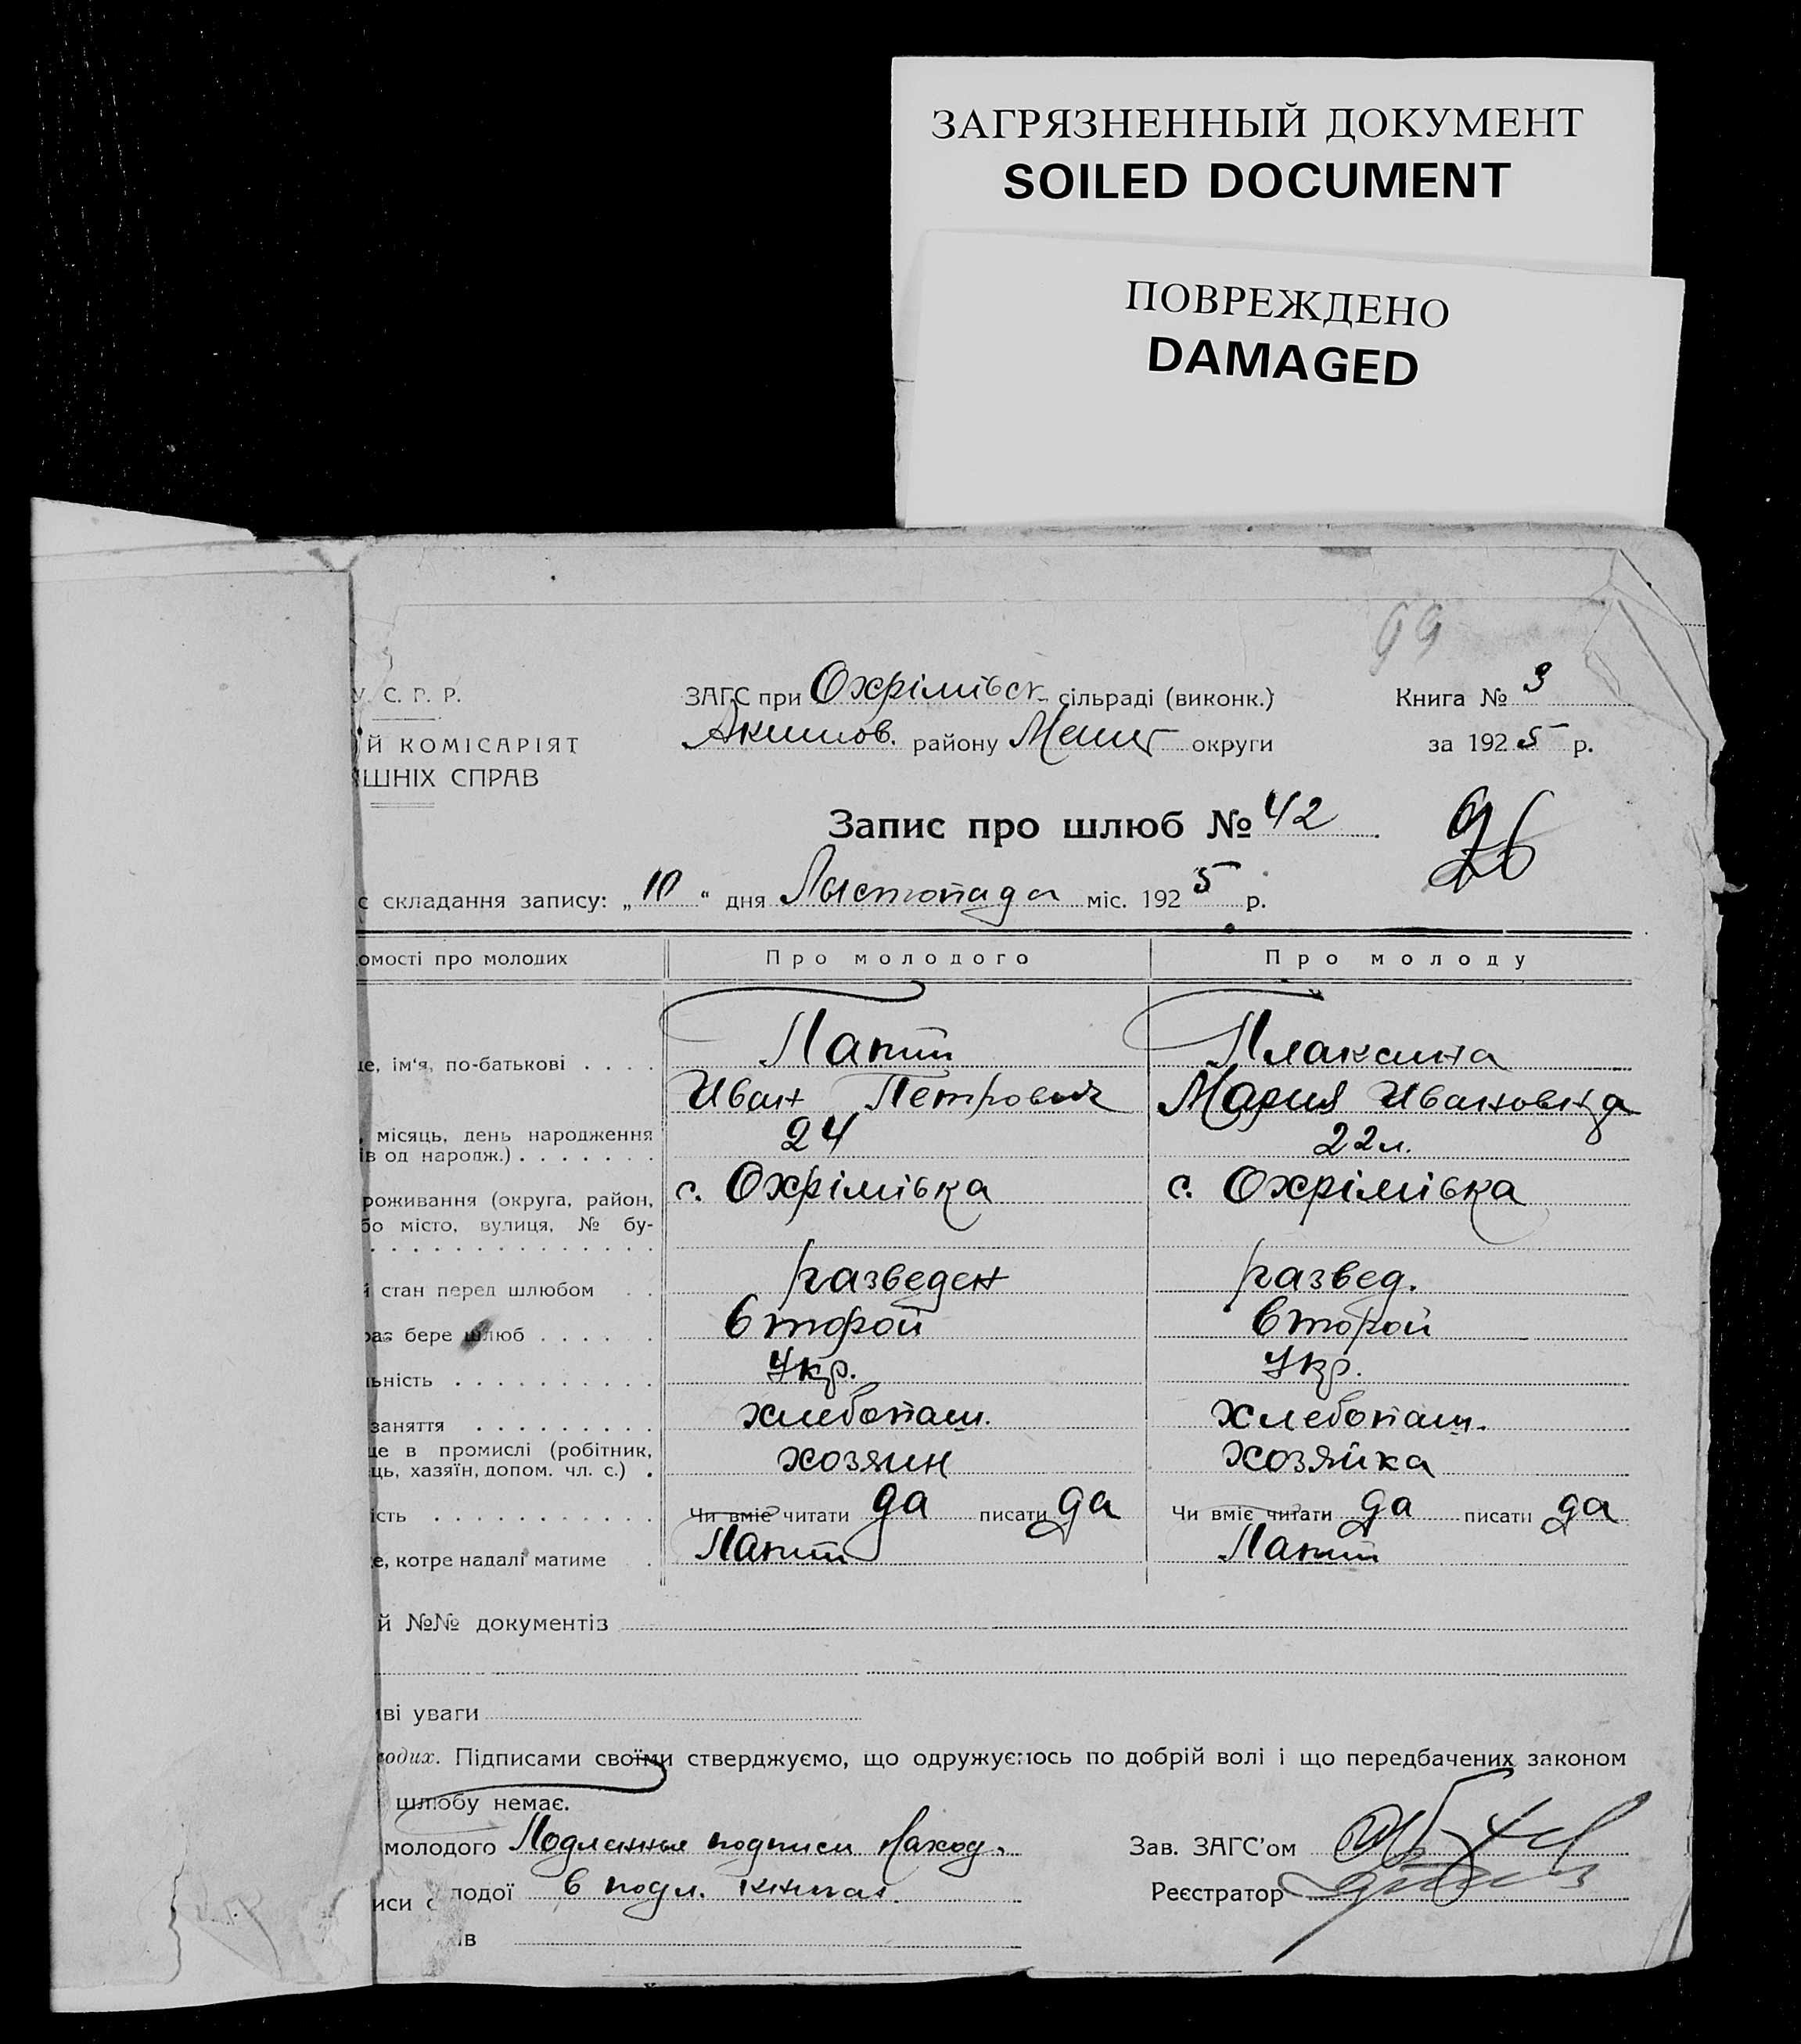 ЗАГРЯЗНЕННЫЙ ДОКУМЕНТ
SOILED DOCUMENT
ПОВРЕЖДЕНО
DAMAGED
99
У. С. Р. Р.
ЗАГС при Охрімівск. сільраді (виконк.)
Книга № 3
Й КОМІСАРІЯТ
Акимов. району Меліт округи
за 1925 р.
ШНІХ СПРАВ
Запис про шлюб № 42
96
с складання запису: „10" дня Листопада міс. 1925 р.
омості про молодих
Про молодого
Про молоду
Плаксина
е, ім'я, по-батькові
Иван Петрович
Мария Ивановна
місяць, день народження
ів од народж.)
24
22 л.
роживання (округа, район,
с. Охрімівка
с. Охрімівка
бо місто, вулиця, № бу-
й стан перед шлюбом
разведен
развед.
раз бере шлюб
второй
второй
ьність
Укр.
Укр.
заняття
хлебопаш.
хлебопаш.
це в промислі (робітник,
ць, хазяїн, допом. чл. с.)
хозяин
хозяйка
ість
Чи вміє читати да писати да
Чи вміє читати да писати да
е, котре надалі матиме
й №№ документів
ві уваги
одих. Підписами своїми стверджуємо, що одружуємось по добрій волі і що передбачених законом
шлюбу немає.
молодого Подлинные подписи наход.
Зав. ЗАГС'ом
иси
лодої в подл. книгах.
Реєстратор
ів